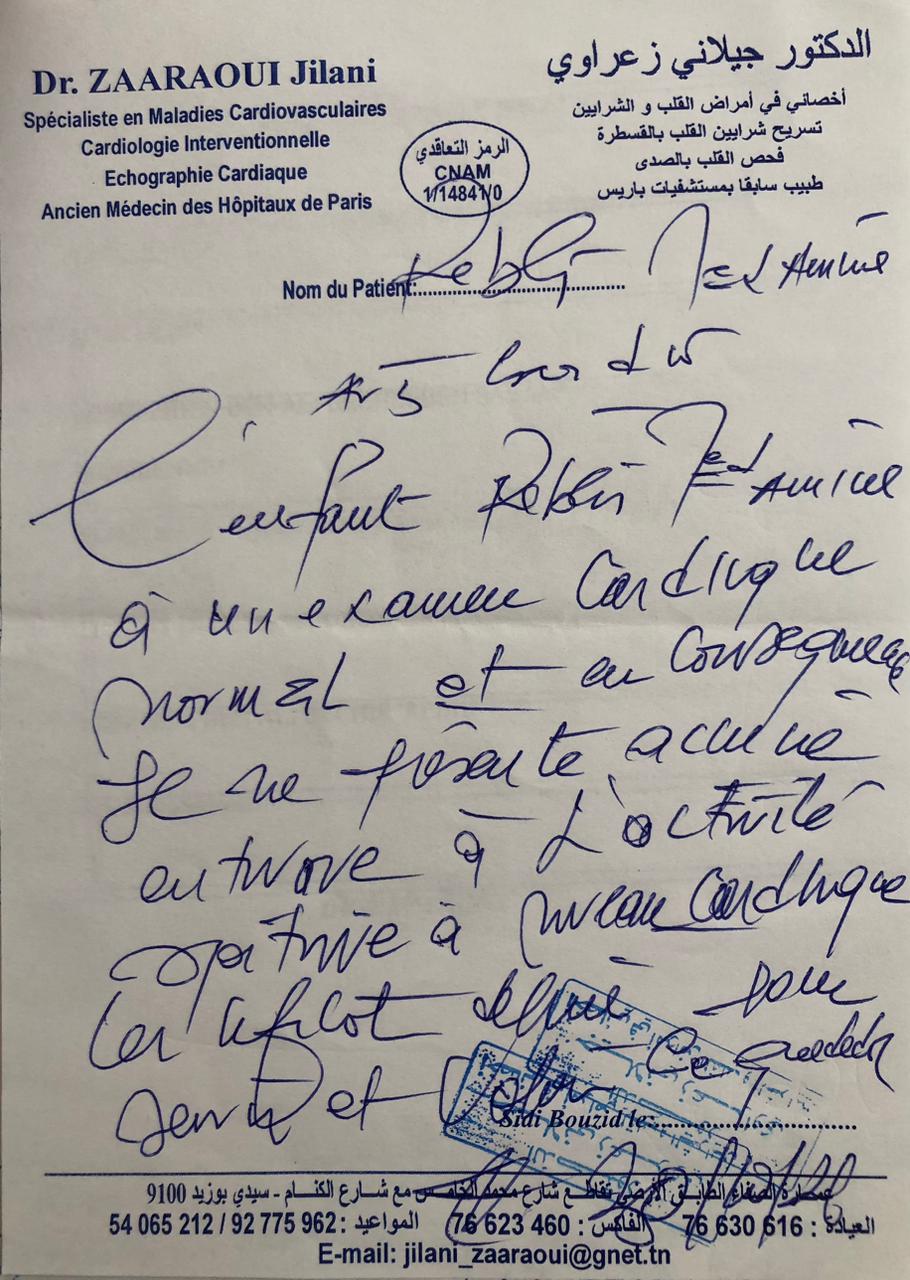 Dr. ZAARAOUI Jilani
Spécialiste en Maladies Cardiovasculaires
Cardiologie Interventionnelle
Echographie Cardiaque
Ancien Médecin des Hôpitaux de Paris
الدكتور جيلاني زعراوي
أخصائي في أمراض القلب و الشرايين
تسريح شرايين القلب بالقسطرة
فحص القلب بالصدى
طبيب سابقا بمستشفيات باريس
الرمز التعاقدي
CNAM
1/14841/0
Nom du Patient: Rebhi Med Amine
L'enfant Rebhi Med Amine
à un examen Cardiaque
normal et en Consequence
Je ne présente aucune
entrave à L'activité
sportive à niveau Cardiaque
pour
servir et
Sidi Bouzid le:
عمارة الصفاء الطابق الأرضي تقاطع شارع محمد الخامس مع شارع الكنام - سيدي بوزيد 9100
العيادة : 76 630 616 الفاكس : 76 623 460 المواعيد : 92 775 962 / 54 065 212
E-mail: jilani_zaaraoui@gnet.tn